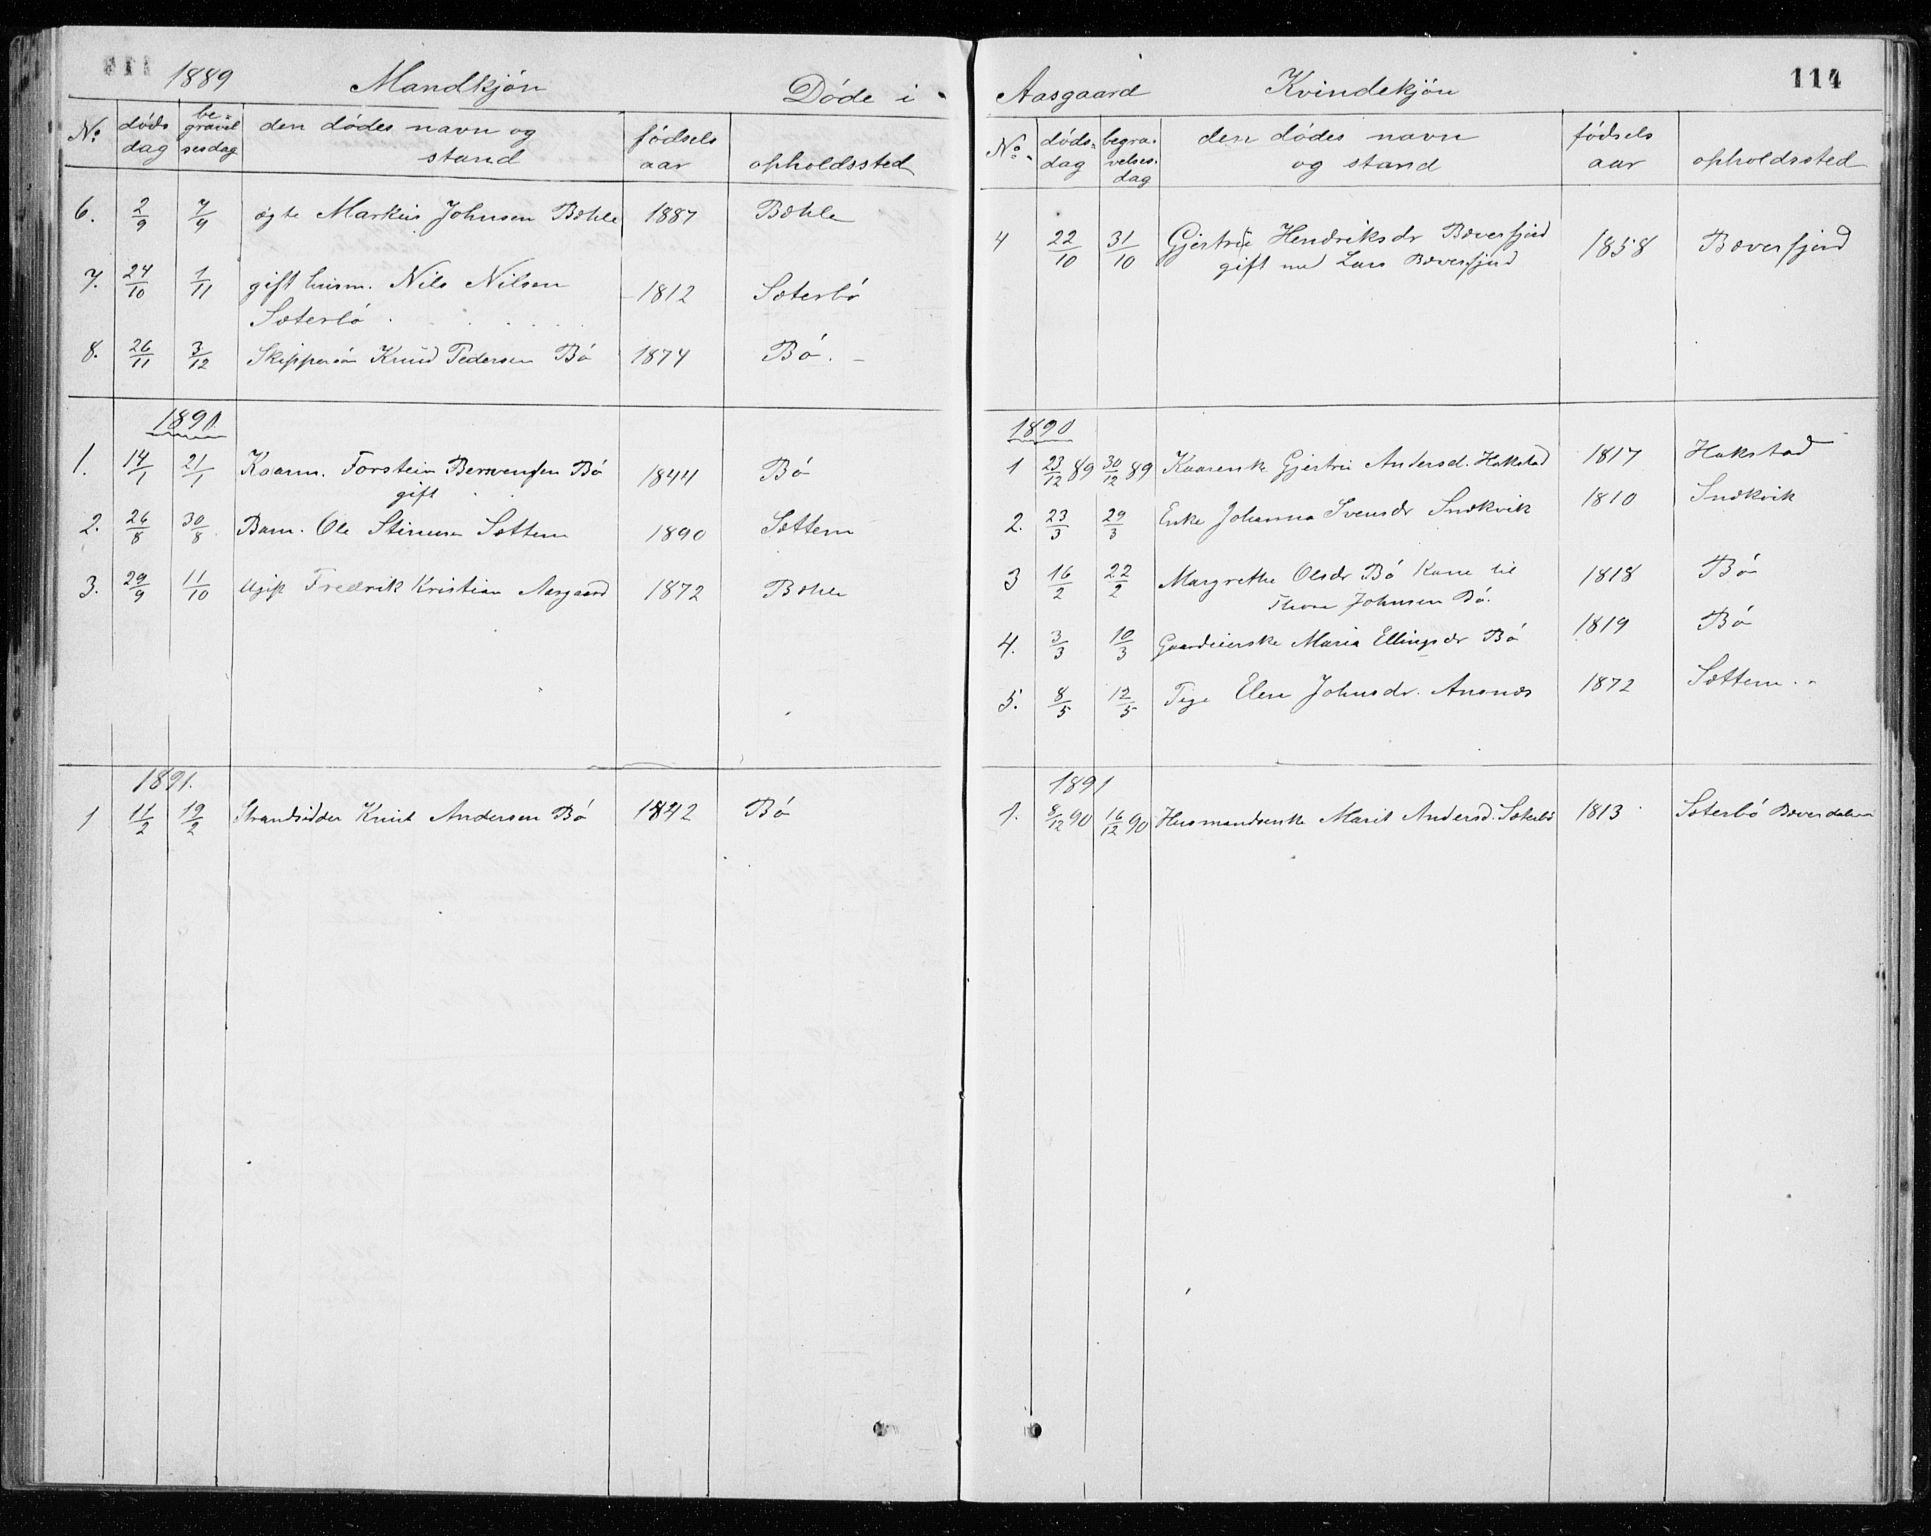 1889 Mandkjøn Døde i
No døds dag be= gravel sesdag den dødes navn og stand fødsels aar opholdssted
6. 2/9 7/9 ægte Markus Johnsen Bæhle 1887 Bæhle
7. 24/10 1/11 gift husm. Nils Nilsen 1812 Sæterbø
Sæterbø
8. 26/11 3/12 Skippersøn Knud Pedersen Bø 1874 Bø. -
1890
1. 14/1 21/1 Kaarm. Torstein Bø 1844 Bø
gift
2. 26/8 30/8 Barn. Ole Sættem 1890 Sættem
3. 29/9 11/10 Ugift Fredrik Kristian Aasgaard 1872 Bæhle
1891.
1 11/2 19/2 Strandsidder Knut Andersen Bø 1842 Bø
Aasgaard Kvindekjøn 114
No. døds= dag begra= velses= dag den dødes navn og stand fødsels aar opholdssted
4 22/10 31/10 Gjertrue Hendriksdr Bæverfjord 1858 Bæverfjord
gift med Lars Bæverfjord
1890
1 23/12 89 30/12 89 Kaarenke Gjertru Andersd. Hakstad 1817 Hakstad
2. 23/3 29/3 Enke Johanna Svensdr Snekvik 1810 Snekvik
3 16/2 22/2 Margrethe Olsdr Bø Kone til 1818 Bø
Thore Johnsen Bø.
4. 3/3 10/3 Gaardeierske Maria Ellingsdr Bø 1819 Bø
5. 8/5 12/5 Pige Elen Johnsdr. Aasnes 1872 Sættem. -
1891
1. 8/12 90 16/12 90 Husmandsenke Marit Andersd. Sæterbø 1813 Sæterbø Bæverdalen